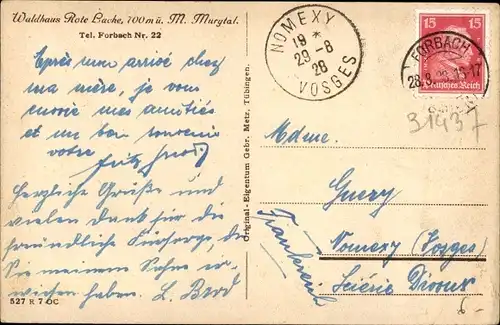 Waldhaus Rote Lache, 700 m ü. M. Murgtal.
Tel. Forbach Nr. 22
Après mon arrivé chez
ma mère, je vous
envoie mes amitiés
et un bon souvenir
votre Fritz
Herzliche Grüße und
vielen Dank für die
freundliche Fürsorge, die
Sie meinem Sohne er-
wiesen haben. L. Brod
527 R 7 OC
Original-Eigentum Gebr. Metz, Tübingen.
NOMEXY
19 *
29-8
28
VOSGES
15 15
Deutsches Reich
FORBACH
28.8.28.15-17
31437
Mdme.
Guery
Nomexy (Vosges)
Scierie
Frankreich
6.-